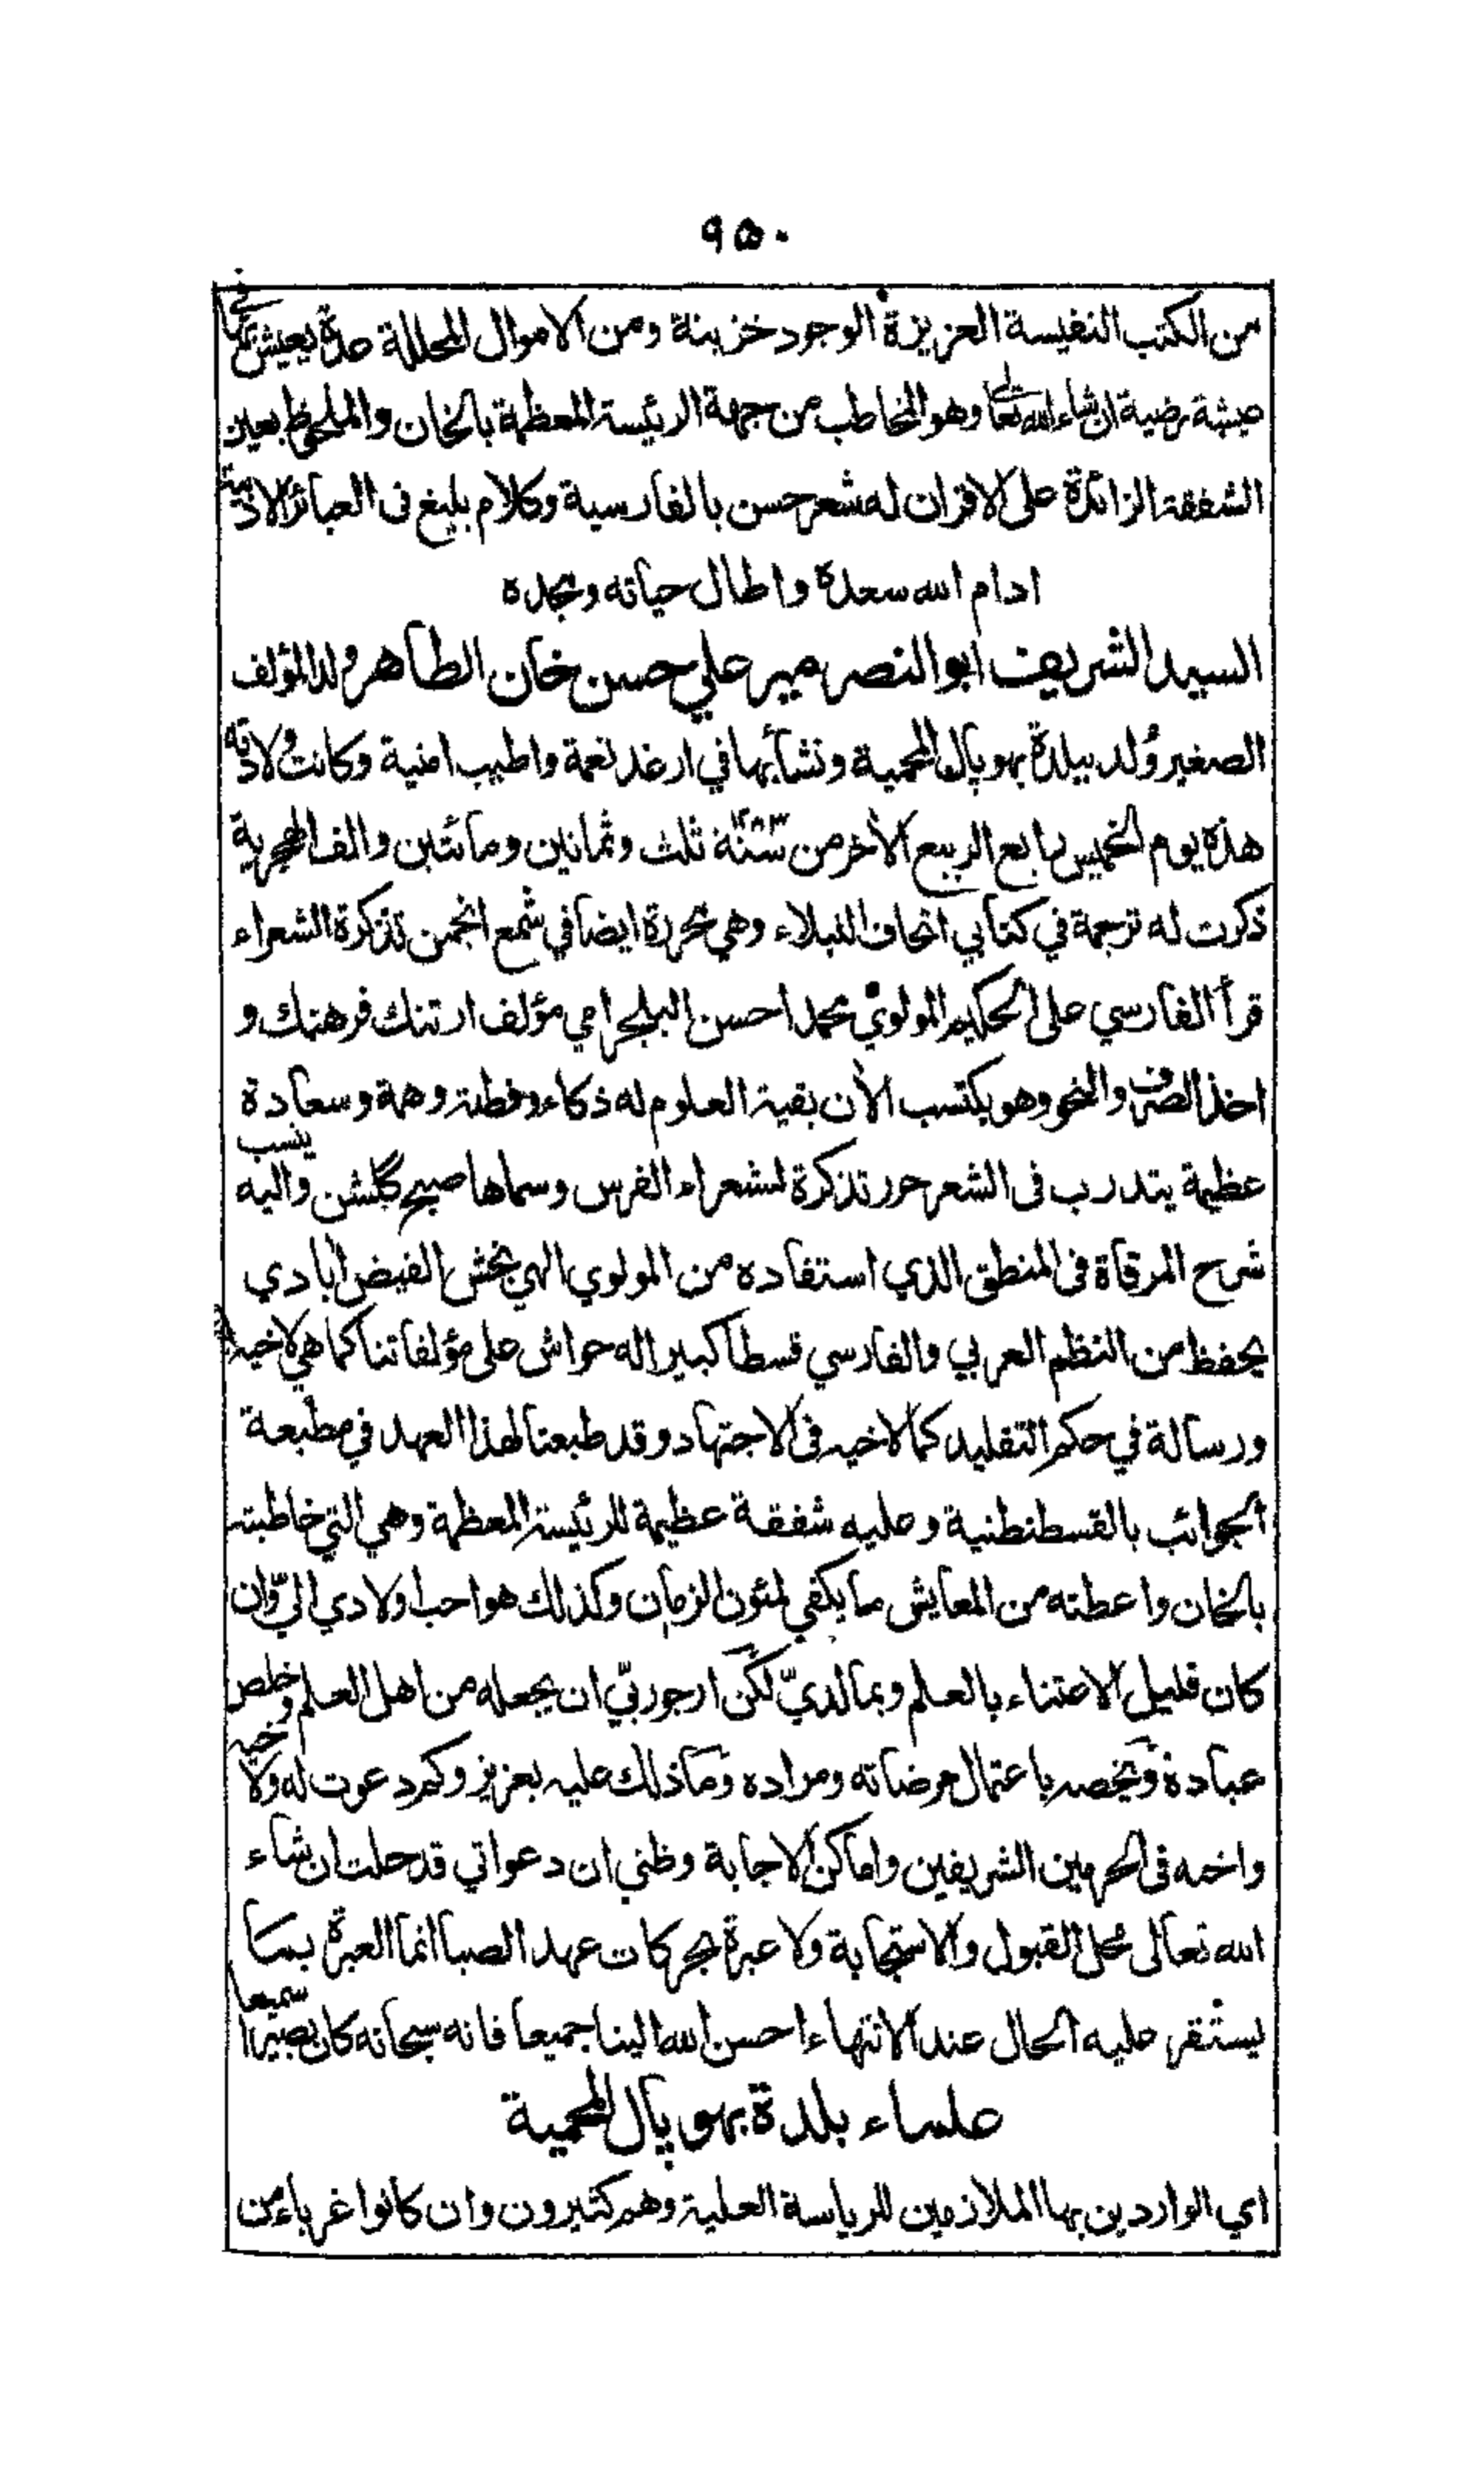 ٩٥٠
من الكتب النفيسة العزيزة الوجود خزينة ومن الاموال المحللة مدة يعيش بها في
عيشة رضية ان شاء الله تعالى وهو المخاطب من جهة الرئيسة المعظمة بالخان والملحوظ بعين
الشفقة الزائدة على الاقران له شعر حسن بالفارسية وكلام بليغ فى العبائر الادبية
ادام الله سعده واطال حياته ومجده
السيد الشريف ابو النصر مير علي حسن خان الطاهر ولد المؤلف
الصغير وُلد ببلدة بهوپال المحمية ونشأ بها في ارغد نعمة واطيب امنية وكانت ولادته
هذه يوم الخميس رابع الربيع الآخر من سنة ١٢٨٣ ثلث وثمانين ومائتين والف الهجرية
ذكرت له ترجمة في كتابي اتحاف النبلاء وهي محررة ايضا في شمع انجمن تذكرة الشعراء
قرأ الفارسي على الحكيم المولوي محمد احسن البلجرامي مؤلف ارتنك فرهنك و
اخذ الصرف والنحو وهو يكتسب الآن بقية العلوم له ذكاء وفطنة وهمة وسعادة
عظيمة يتدرب فى الشعر حرر تذكرة لشعراء الفرس وسماها صبح گلشن واليه ينسب
شرح المرقاة فى المنطق الذي استفاده من المولوي الهي بخش الفيض آبادي
يحفظ من النظم العربي والفارسي قسطا كبيرا له حواش على مؤلفاتنا كما هي لاخيه
ورسالة في حكم التقليد كما لاخيه فى الاجتهاد وقد طبعنا لهذا العهد في مطبعة
الجوائب بالقسطنطنية وعليه شفقة عظيمة للرئيسة المعظمة وهي التي خاطبته
بالخان واعطته من المعايش ما يكفي لمئون الزمان وكذلك هو احب اولادي اليّ وان
كان قليل الاعتناء بالعلم وبما لديّ لكن ارجو ربيّ ان يجعله من اهل العلم وخلص
عباده ويخصه باعتمال مرضاته ومراده وما ذلك عليه بعزيز وكم دعوت له ولاخيه
واخته فى الحرمين الشريفين واماكن الاجابة وظني ان دعواتي قد حلت ان شاء
الله تعالى محل القبول والاستجابة ولا عبرة بحركات عهد الصبا انما العبرة بما
يستقر عليه الحال عند الانتهاء احسن الله الينا جميعا فانه سبحانه كان بصيرا سميعا
علماء بلدة بهوپال المحمية
اي الواردين بها الملازمين للرياسة العلية وهم كثيرون وان كانوا غرباء من